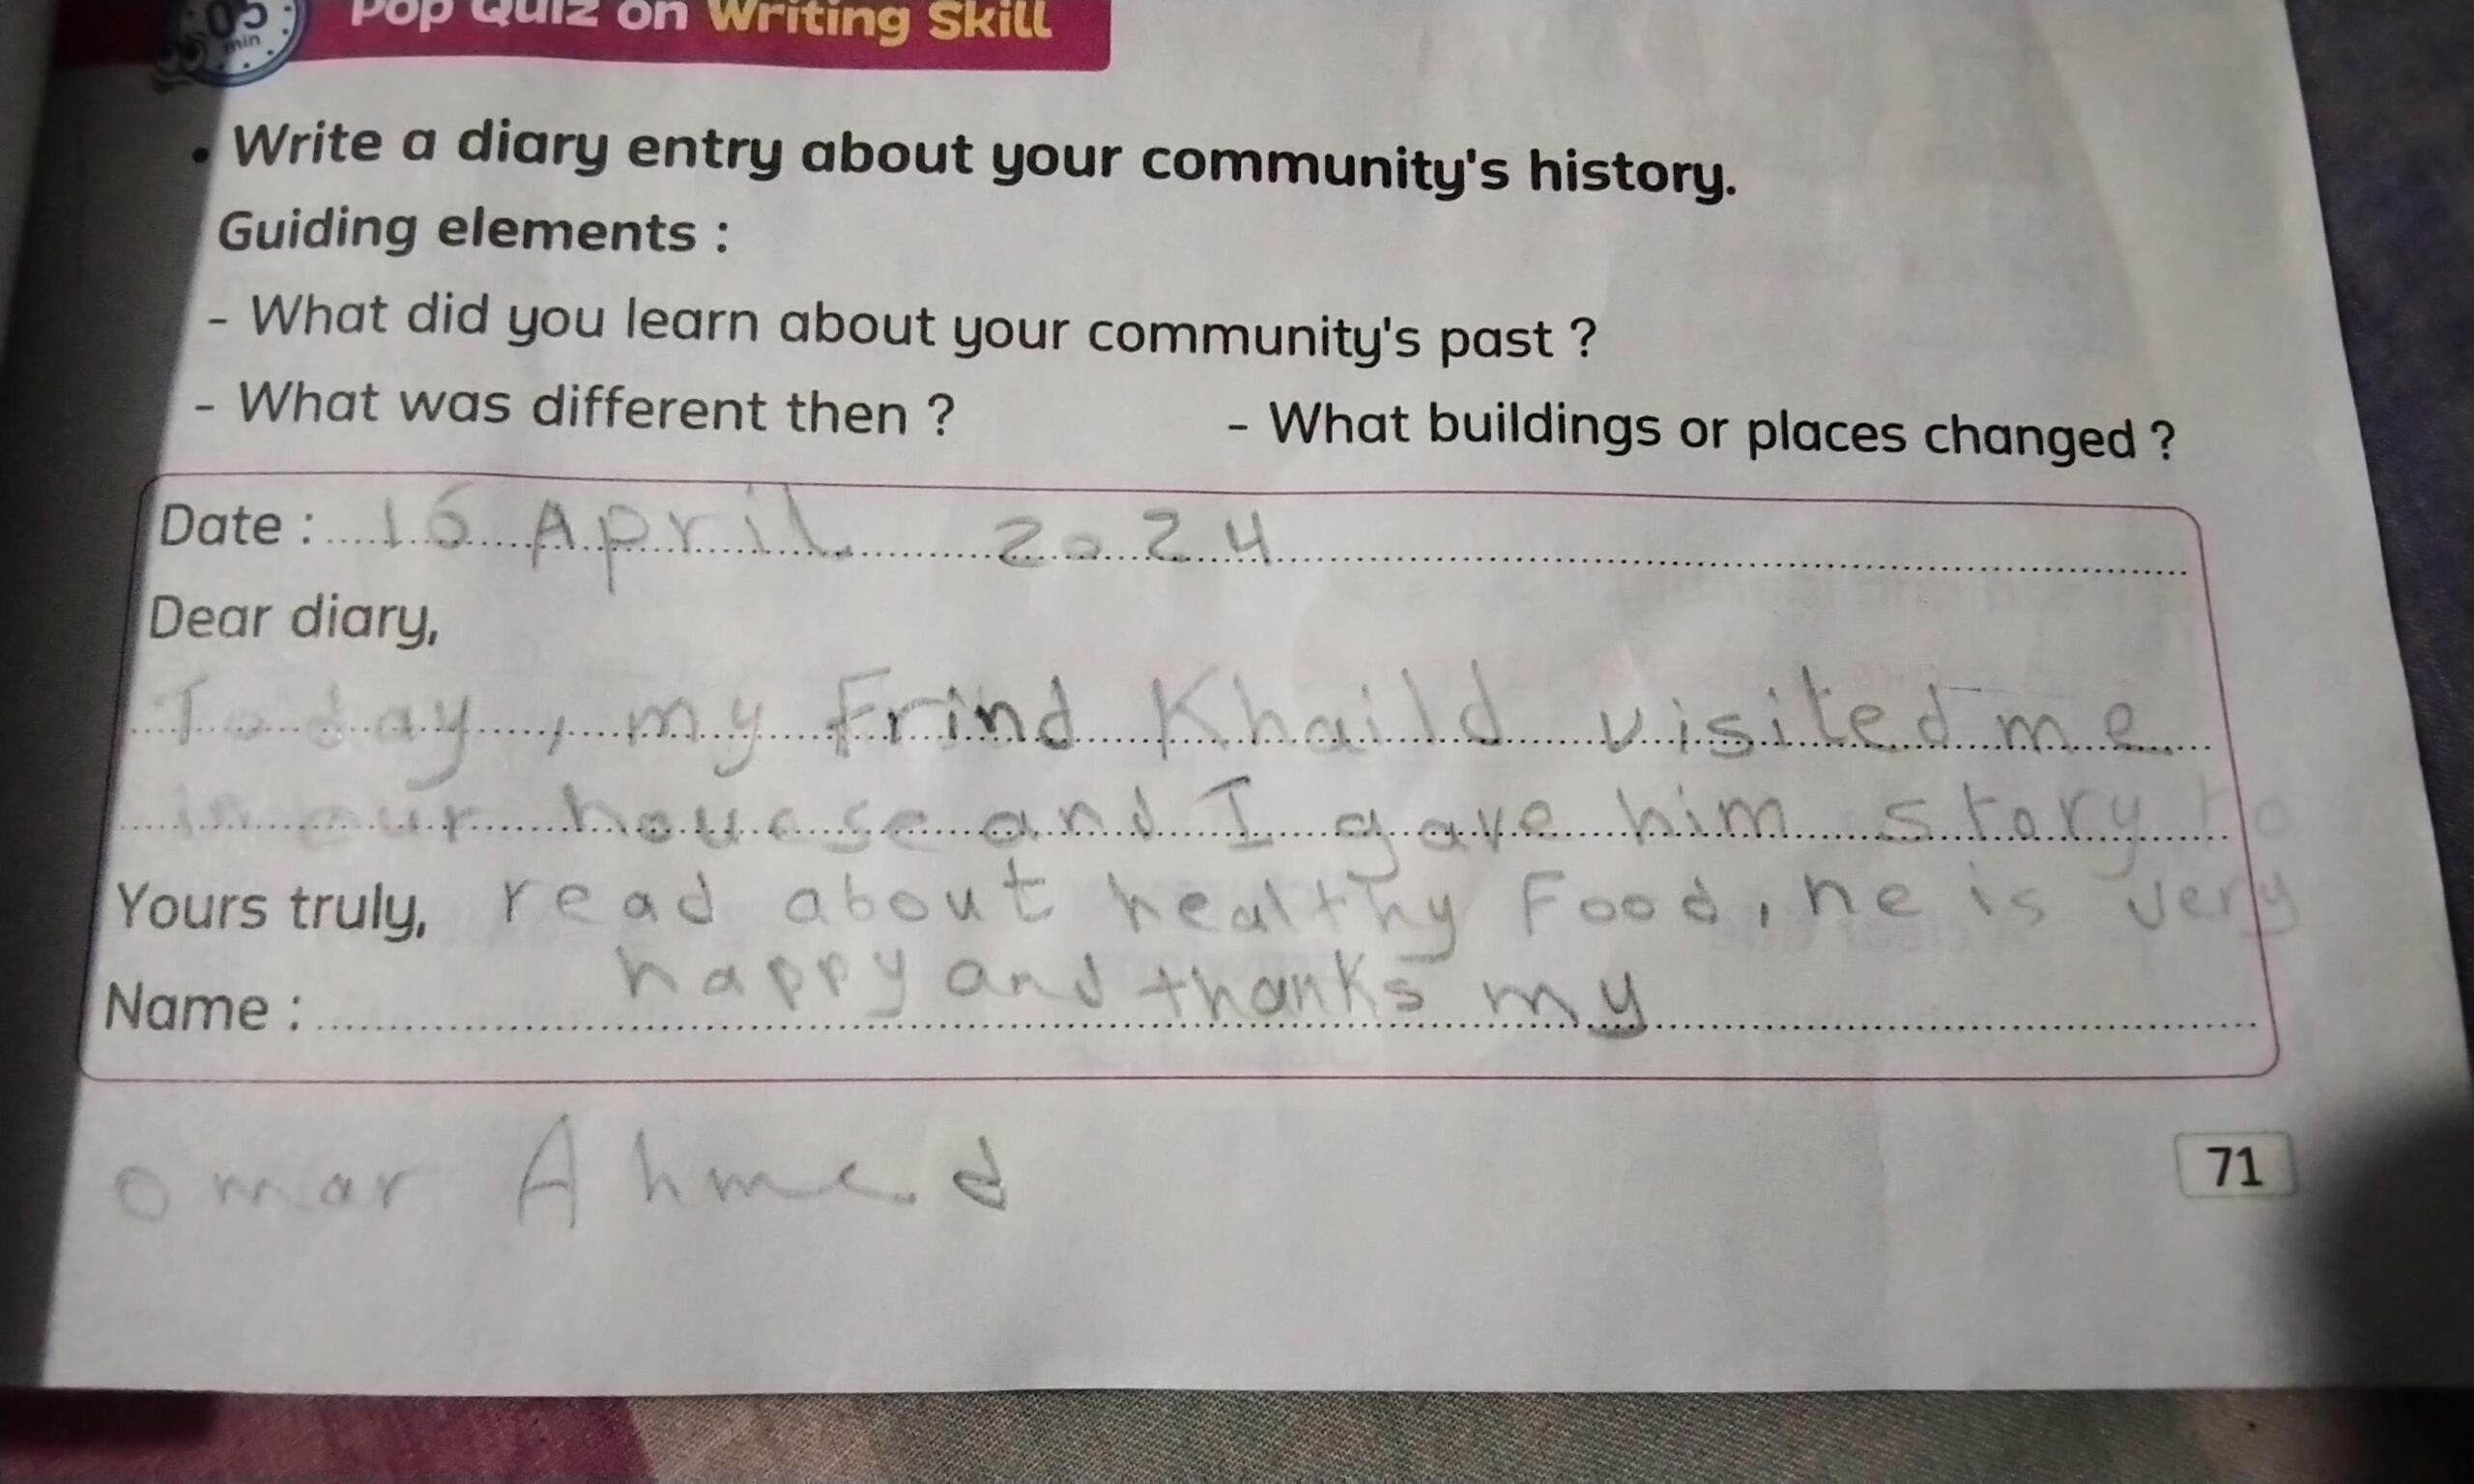 05
min
Pop Quiz on Writing Skill
• Write a diary entry about your community's history.
Guiding elements :
- What did you learn about your community's past ?
- What was different then ? - What buildings or places changed ?
Date : 16 April 2024
Dear diary,
Today, my Frind Khaild visited me
in our houcse and I gave him story to
Yours truly, read about healthy Food, he is very
happy and thanks my
Name :
omar Ahmed
71